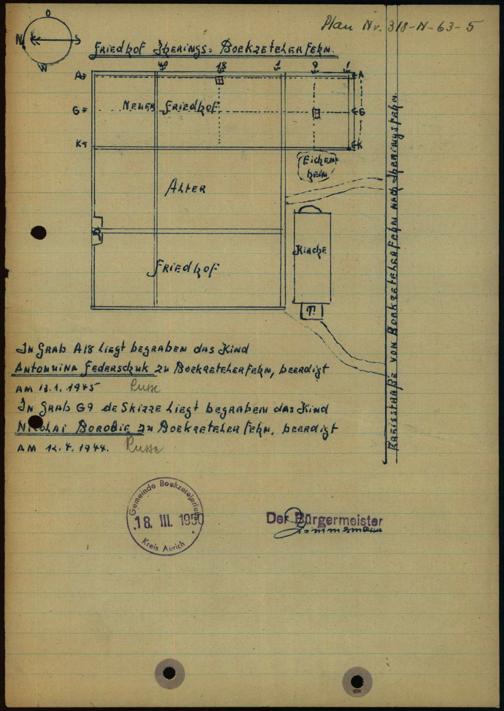 Plan Nr. 318-N-63-5
O
N
W
Friedhof Jherings-Boekzetelerfehn.
18
1
9
1
A=
A
G=
G
K=
K
Neuer Friedhof
Eichen
Alter
Friedhof
Kirche
T.
Kreisstraße von Boekzetelerfehn nach Jheringsfehn.
In Grab A18 liegt begraben das Kind
Antonnina Federschuk zu Boekzetelerfehn, beerdigt
am 13.1.1945 Russe
In Grab G9 de Skizze liegt begraben das Kind
Nikolai Borobie zu Boekzetelerfehn, beerdigt
am 12.4.1944. Russe
Gemeinde Boekzetelerfehn
18. III. 1950
Kreis Aurich
Der Bürgermeister